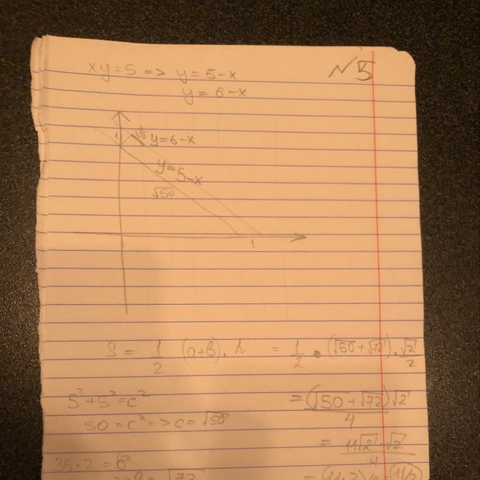 №5
xy=5 => y=5-x
y=6-x
y=6-x
y=5-x
√50
1
S = 1/2 (a+b).h = 1/2 . (√50+√72).√2/2
5²+5²=c²
= (√50+√72)√2/4
50=c²=>c=√50
= 11√2.√2/4
36.2=b²